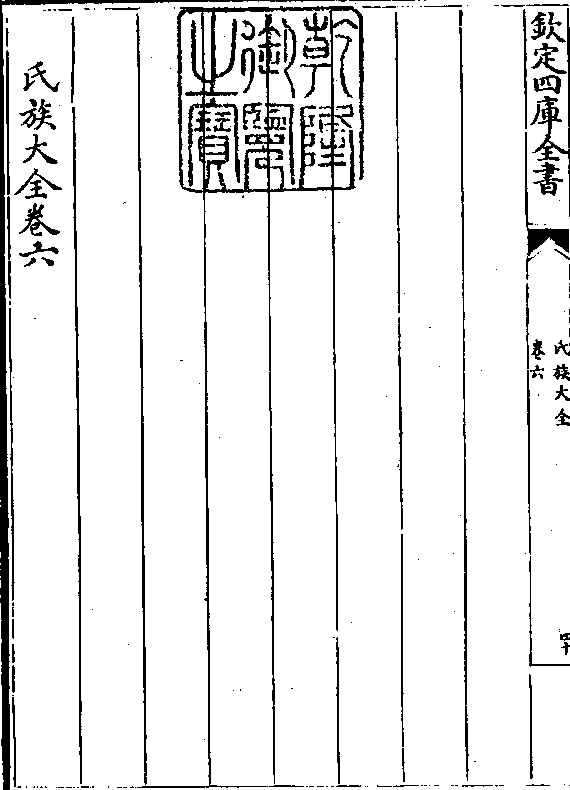 欽定四庫全書
氏族大全
卷六
四十
乾隆
御覽
之寶
氏族大全卷六